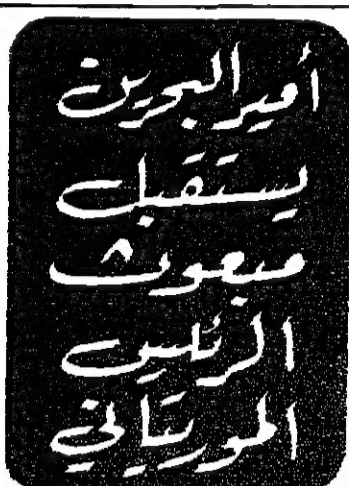 أمير البحرين
يستقبل
مبعوث
الرئيس
الموريتاني